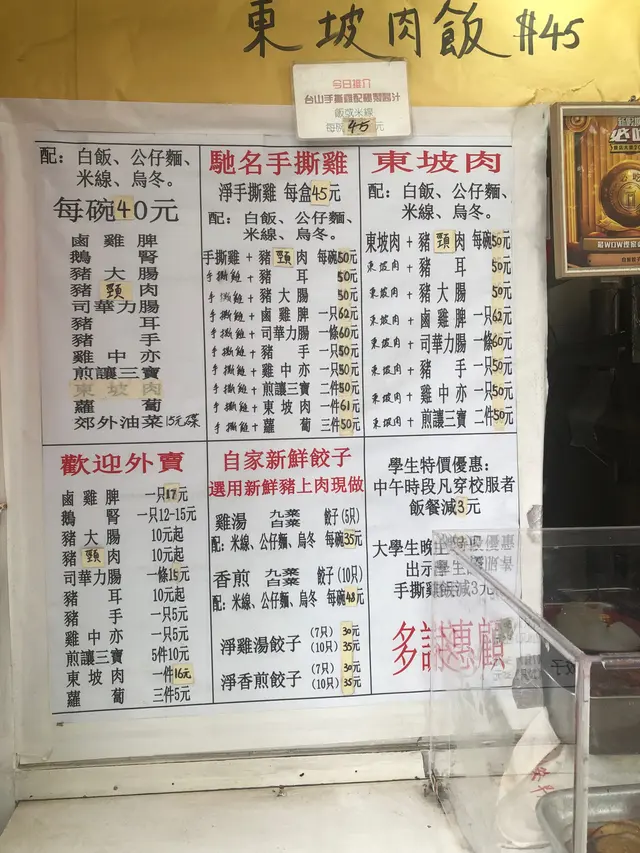 東坡肉飯 $45
今日推介
台山手撕雞配秘製醬汁
飯或米線
每碗45元
配：白飯、公仔麵、
米線、烏冬。
每碗40元
鹵雞脾
鵝腎
豬大腸
豬頸肉
司華力腸
豬耳
豬手
雞中亦
煎讓三寶
東坡肉
蘿蔔
郊外油菜15元碟
馳名手撕雞
淨手撕雞 每盒45元
配：白飯、公仔麵、
米線、烏冬。
手撕雞+豬頸肉 每碗50元
手撕雞+豬耳 50元
手撕雞+豬大腸 50元
手撕雞+鹵雞脾 一只62元
手撕雞+司華力腸 一條60元
手撕雞+豬手 一只50元
手撕雞+雞中亦 一只50元
手撕雞+煎讓三寶 二件50元
手撕雞+東坡肉 一件61元
手撕雞+蘿蔔 三件50元
東坡肉
配：白飯、公仔麵、
米線、烏冬。
東坡肉+豬頸肉 每碗50元
東坡肉+豬耳 50元
東坡肉+豬大腸 50元
東坡肉+鹵雞脾 一只62元
東坡肉+司華力腸 一條60元
東坡肉+豬手 一只50元
東坡肉+雞中亦 一只50元
東坡肉+煎讓三寶 二件50元
歡迎外賣
鹵雞脾 一只17元
鵝腎 一只12-15元
豬大腸 10元起
豬頸肉 10元起
司華力腸 一條15元
豬耳 10元起
豬手 一只5元
雞中亦 一只5元
煎讓三寶 5件10元
東坡肉 一件16元
蘿蔔 三件5元
自家新鮮餃子
選用新鮮豬上肉現做
雞湯 九菜 白菜 餃子(5只)
配：米線、公仔麵、烏冬 每碗35元
香煎 九菜 白菜 餃子(10只)
配：米線、公仔麵、烏冬 每碗48元
淨雞湯餃子 (7只) 30元
(10只) 35元
淨香煎餃子 (7只) 30元
(10只) 35元
學生特價優惠：
中午時段凡穿校服者
飯餐減3元
大學生晚上特價優惠
出示學生證
手撕雞飯減3元
多謝惠顧